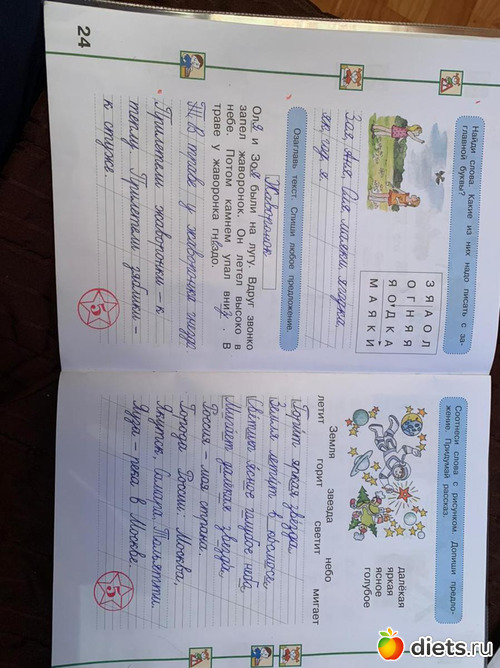 Найди слова. Какие из них надо писать с за-
главной буквы?
З Я А О Л
О Г Н Я Я
Я О Д К А
М А Я К И
Зоя, Аня, Оля, маяки, ягодка,
Озаглавь текст. Спиши любое предложение.
Жаворонок
Оля и Зоя были на лугу. Вдруг звонко
запел жаворонок. Он летел высоко в
небе. Потом камнем упал вниз . В
траве у жаворонка гнездо.
В траве у жаворонка гнездо
Прилетели жаворонки – к
теплу. Прилетели зяблики –
к стуже.
5
24
Соотнеси слова с рисунком. Допиши предло-
жение. Придумай рассказ.
далёкая
яркая
ясное
голубое
Земля звезда небо
летит горит светит мигает
Горит яркая звезда.
Земля летит в космосе.
Светит ясное голубое небо.
Мигает далёкая звезда.
Россия – моя страна.
Города России: Москва,
Якутск, Самара, Тольятти.
Яуза река в Москве.
5
diets.ru